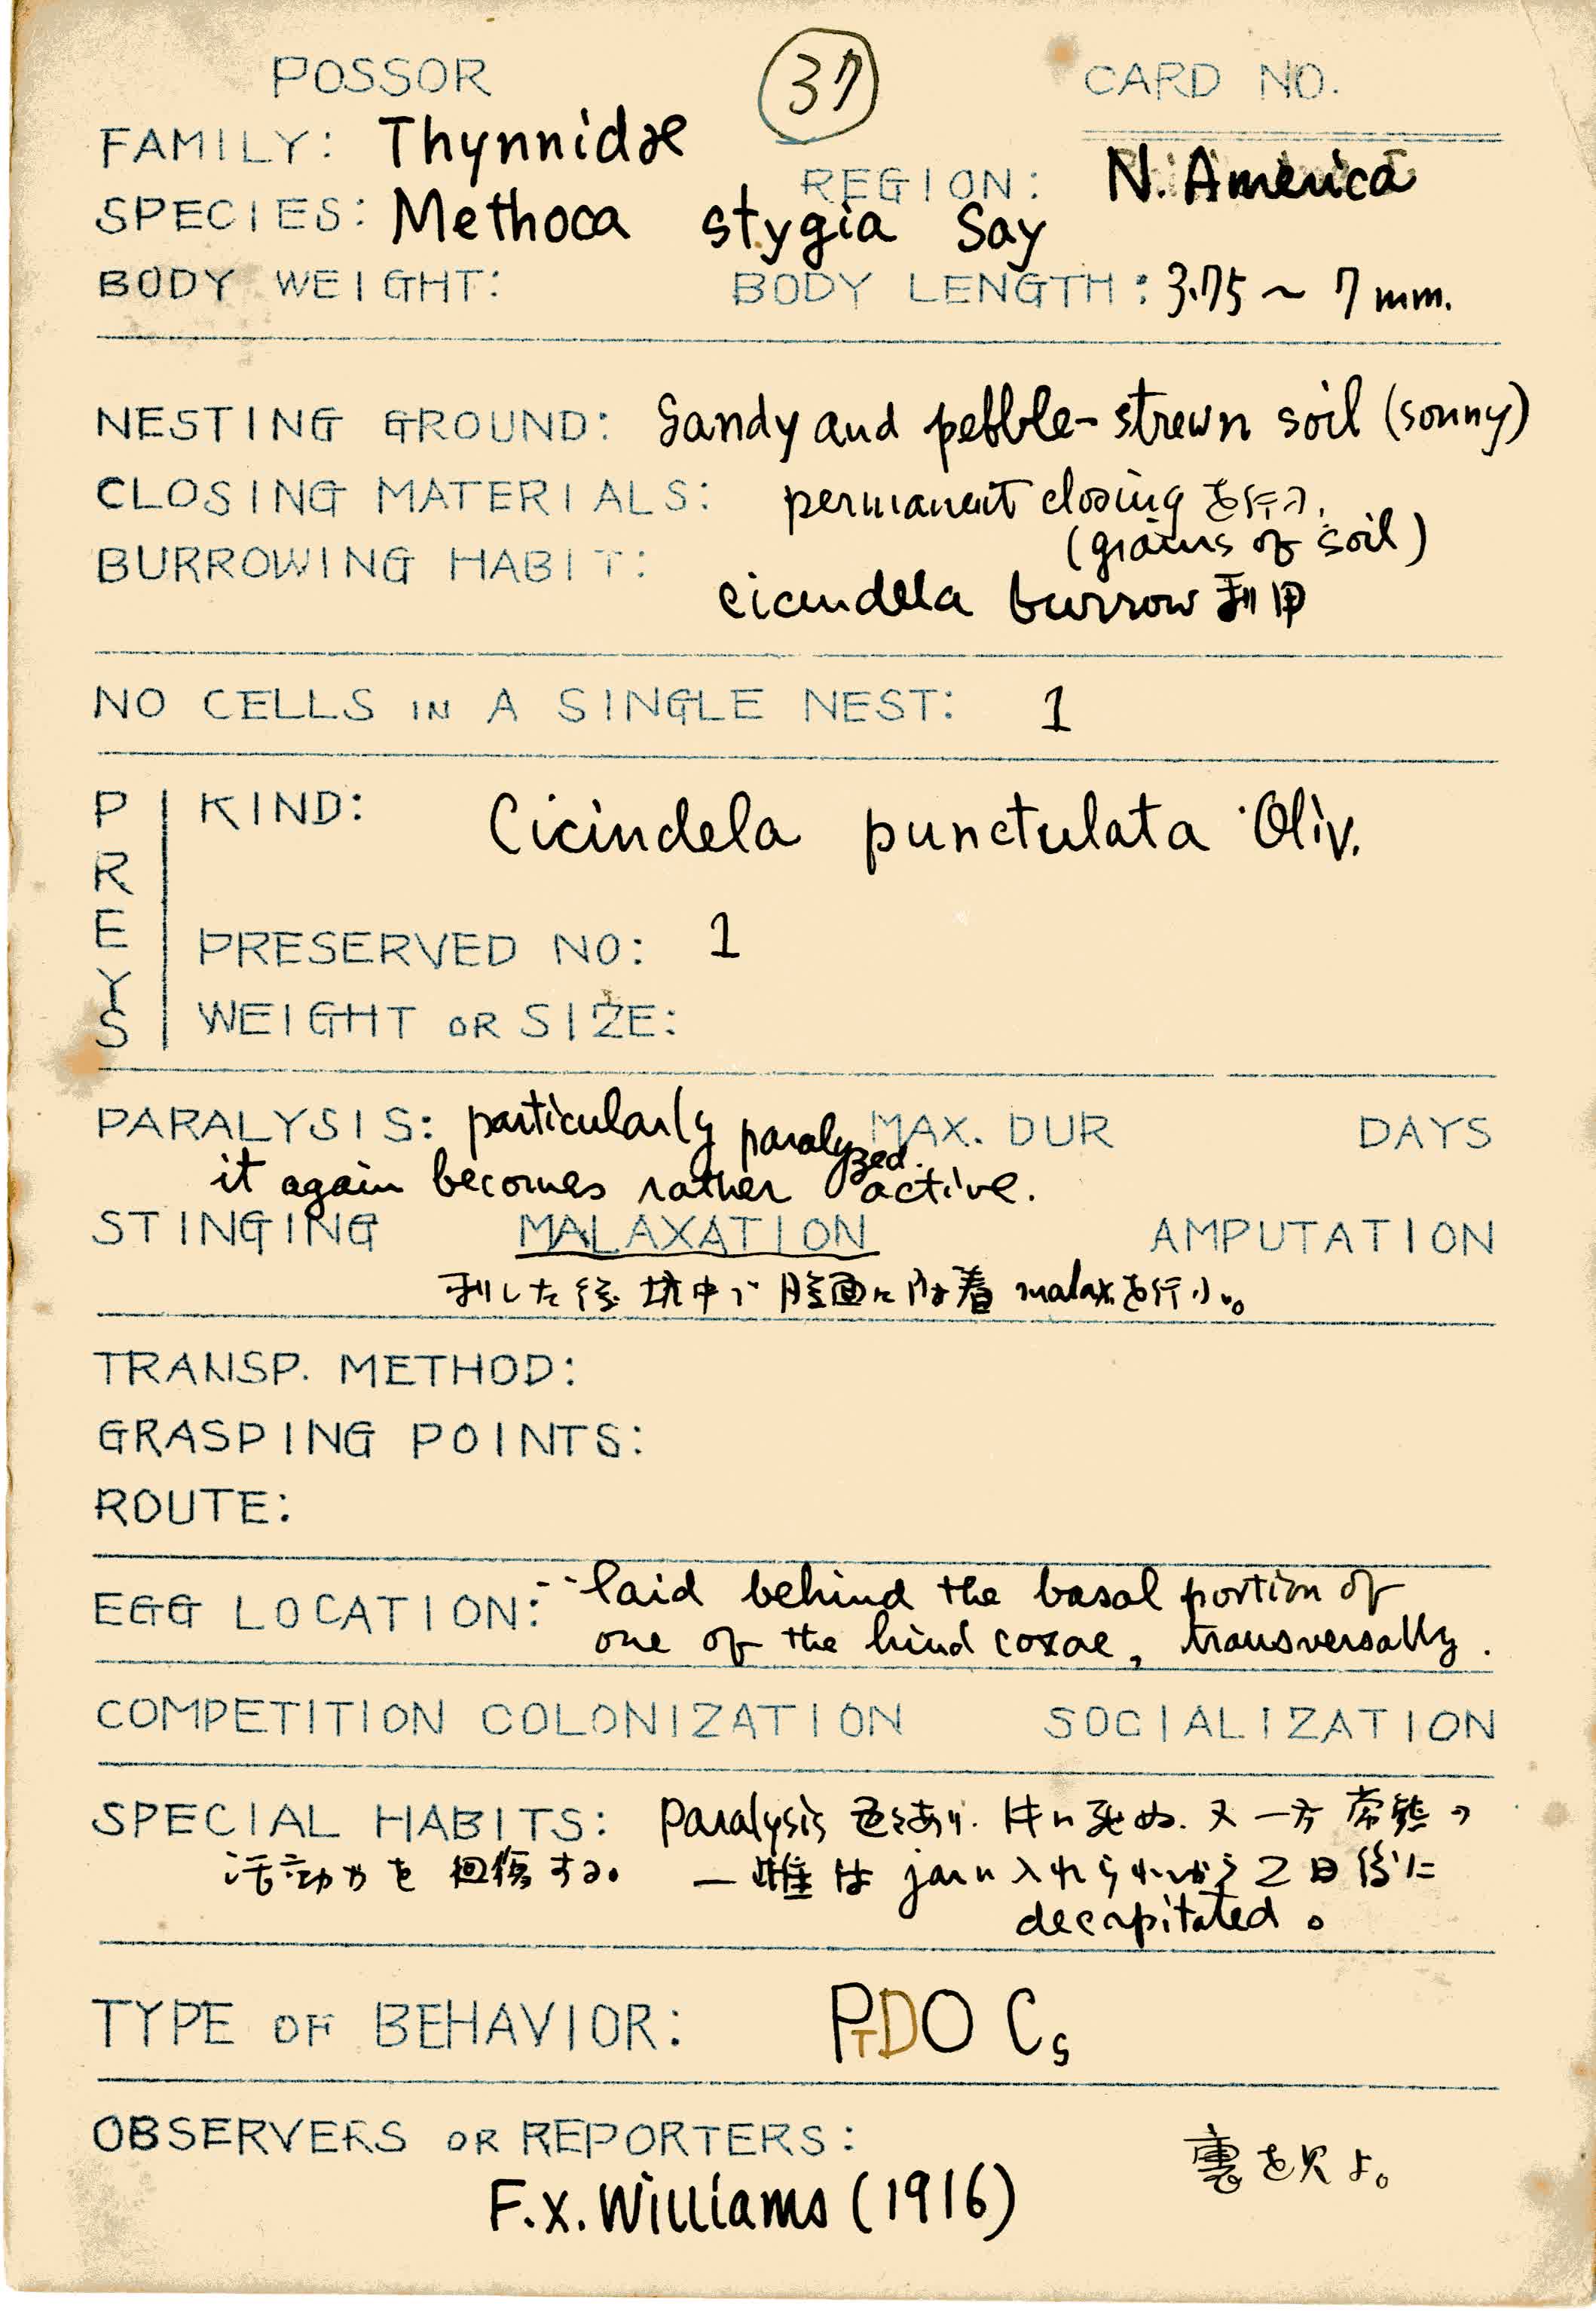 POSSOR
37
CARD NO.
FAMILY: Thynnidae
REGION: N. America
SPECIES: Methoca stygia Say
BODY WEIGHT: BODY LENGTH: 3.75 ~ 7 mm.
NESTING GROUND: Sandy and pebble-strewn soil (sonny)
CLOSING MATERIALS: permanent closing を行フ.
(grains of soil)
BURROWING HABIT:
cicindela burrow 利用
NO CELLS IN A SINGLE NEST: 1
PREYS
KIND: Cicindela punctulata Oliv.
PRESERVED NO: 1
WEIGHT OR SIZE:
PARALYSIS: particularly paralyzed. MAX. DUR DAYS
it again becomes rather active.
STINGING MALAXATION AMPUTATION
刺した後 坑中で 腹面に附着 malax.を行ふ。
TRANSP. METHOD:
GRASPING POINTS:
ROUTE:
EGG LOCATION: laid behind the basal portion of
one of the hind coxae, transversally.
COMPETITION COLONIZATION SOCIALIZATION
SPECIAL HABITS: Paralysis 死ぬ. 又一方常態の
活動力を回復する。 一雌は jarに入れられてから2日後に
decapitated。
TYPE OF BEHAVIOR: PTDO Cs
OBSERVERS OR REPORTERS:
裏を見よ。
F.X. Williams (1916)